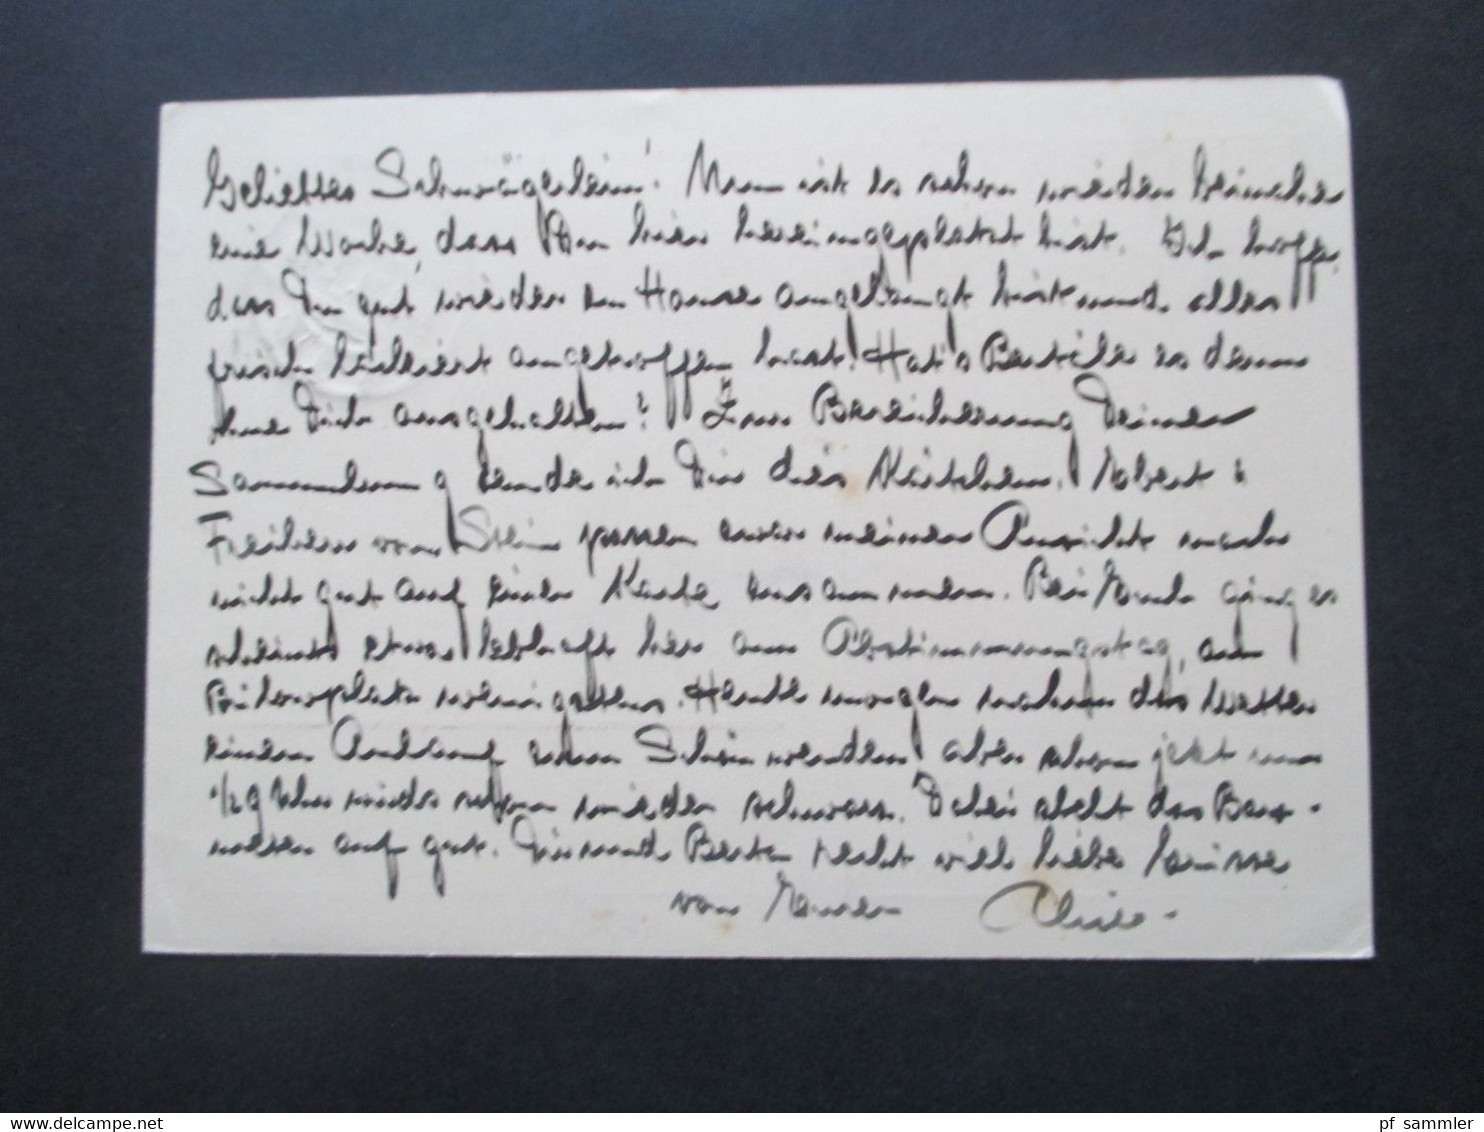 Geliebtes Schwägerlein! Nun ist es schon wieder beinahe
eine Woche, dass Du hier hereingeplatzt bist. Ich hoffe,
dass Du gut wieder zu Hause angelangt bist und alles
frisch angetroffen hast. Hat's Bertele es denn
ohne Dich ausgehalten? Zur Bereicherung Deiner
Sammlung sende ich Dir dies Kärtchen. Robert &
Freiherr von Stein passen zwar meiner Ansicht nach
nicht gut auf einer Karte zusammen. Bei Euch ging es
scheints etwas lebhaft her am Abstimmungstag, am
wenigstens. Heute morgen nahm das Wetter
einen Anlauf zum Schönwerden, aber schon jetzt um
1/2 9 Uhr wirds schon wieder schwarz. Dabei steht das Baro-
meter auf gut. Dir und Berten recht viele liebe Grüsse
von Eurer Alice.
delcampe.net
pf_sammler